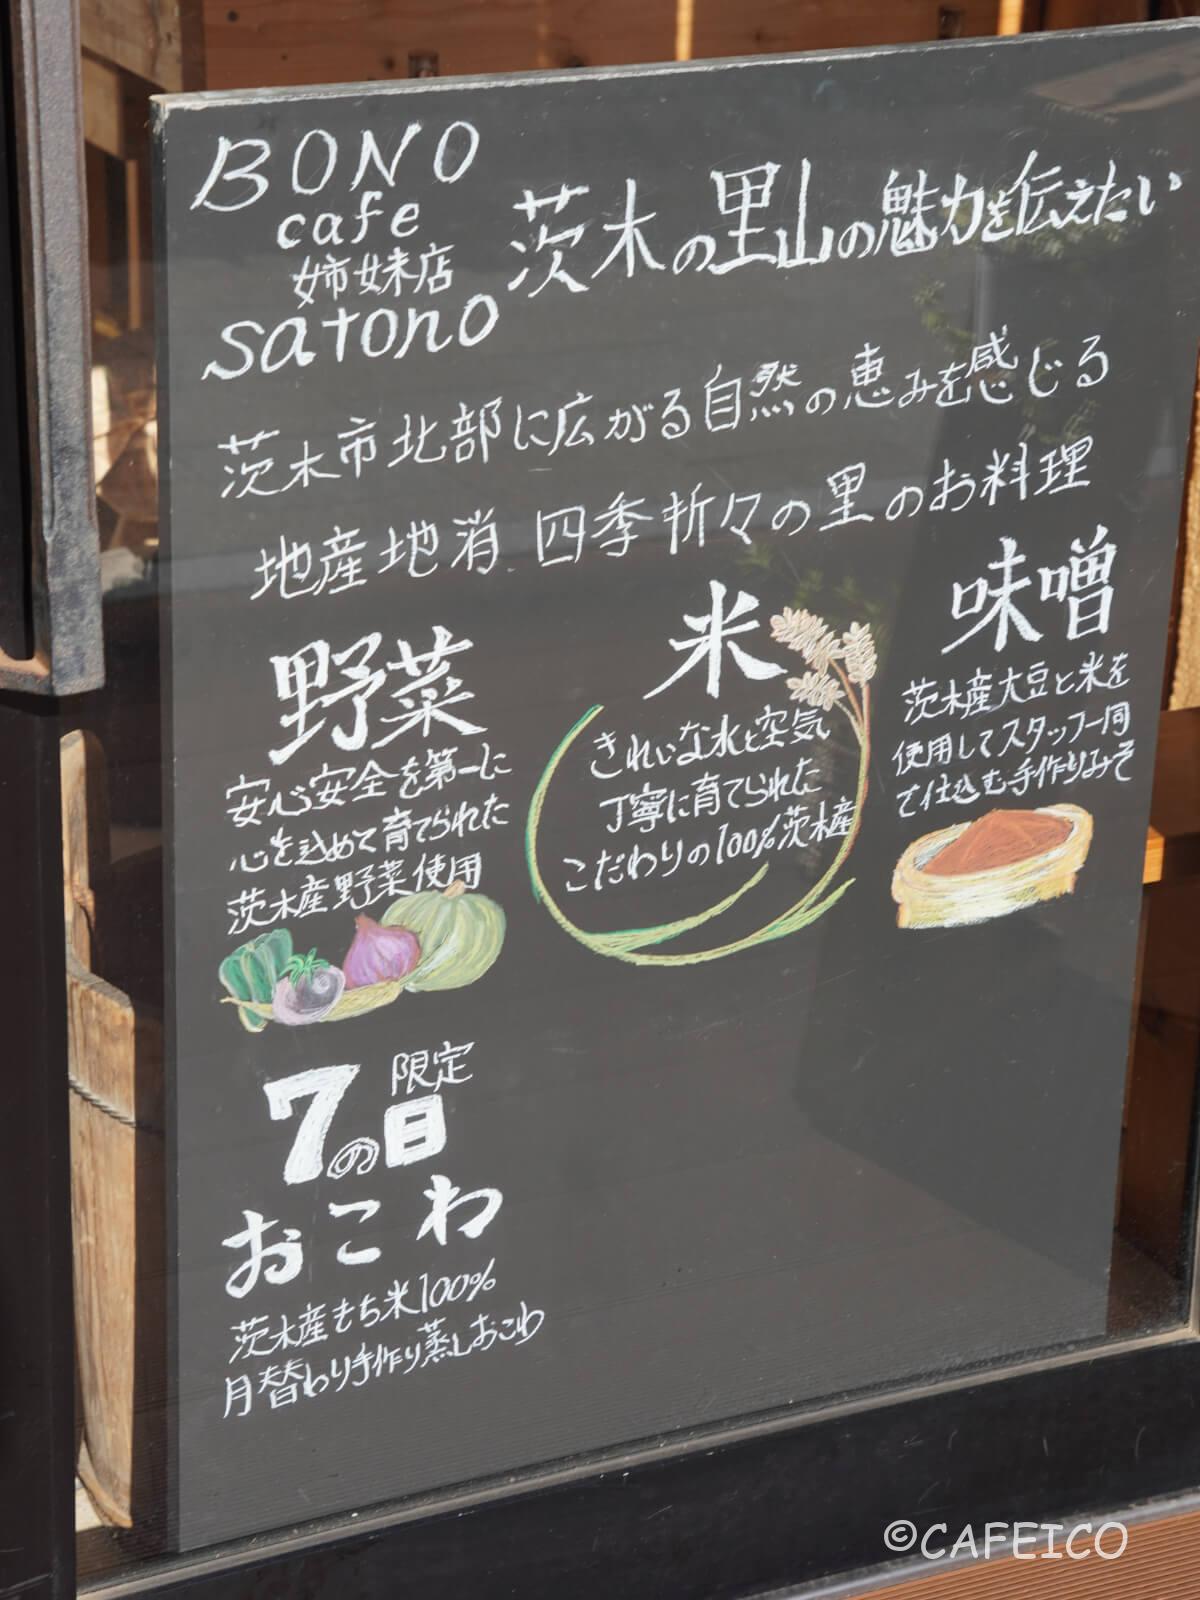 BONO
cafe
姉妹店
satono
茨木の里山の魅力を伝えたい
茨木市北部に広がる自然の恵みを感じる
地産地消 四季折々の里のお料理
野菜
安心安全を第一に
心を込めて育てられた
茨木産野菜使用
米
きれいな水と空気
丁寧に育てられた
こだわりの100%茨木産
味噌
茨木産大豆と米を
使用してスタッフ一同
で仕込む手作りみそ
限定
7の日
おこわ
茨木産もち米100%
月替わり手作り蒸しおこわ
©CAFEICO